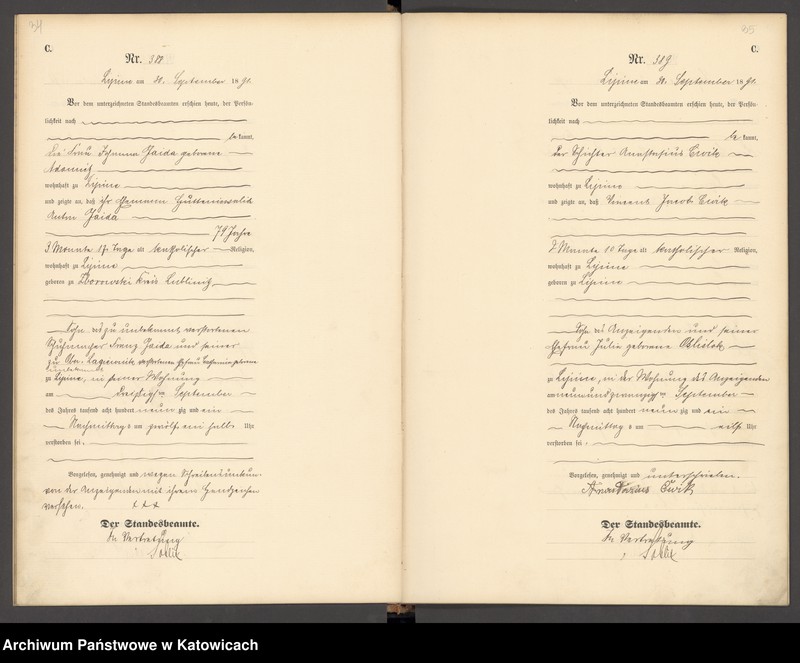 34
C.
Nr. 388
Lipine am 30. September 1891.
Vor dem unterzeichneten Standesbeamten erschien heute, der Persön-
lichkeit nach
be kannt,
die Frau Johanna Jaida geborene
Adamietz
wohnhaft zu Lipine
und zeigte an, daß ihr Ehemann Hütteninvalid
Anton Jaida
79 Jahre
3 Monate 17 Tage alt katholischer Religion,
wohnhaft zu Lipine
geboren zu Kreis Lublinitz
Sohn des zu unbekannt verstorbenen
Schuhmacher Franz Jaida und seiner
zu Ober Lagiewnik verstorbenen Ehefrau geborene
unbekannt
zu Lipine, in seiner Wohnung
am dreißigsten September
des Jahres tausend acht hundert neun zig und ein
Nachmittags um zwölf ein halb Uhr
verstorben sei.
Vorgelesen, genehmigt und wegen Schreibensunkun-
von der Anzeigenden mit ihrem Handzeichen
versehen. + + +
Der Standesbeamte.
In Vertretung
35
C.
Nr. 389
Lipine am 30. September 1891.
Vor dem unterzeichneten Standesbeamten erschien heute, der Persön-
lichkeit nach
be kannt,
der Anastasius Cwik
wohnhaft zu Lipine
und zeigte an, daß Vincent Jacob Cwik
2 Monate 10 Tage alt katholischer Religion,
wohnhaft zu Lipine
geboren zu Lipine
Sohn des Anzeigenden und seiner
Ehefrau Julie geborene
zu Lipine, in der Wohnung des Anzeigenden
am neunundzwanzigsten September
des Jahres tausend acht hundert neun zig und ein
Nachmittags um eilf Uhr
verstorben sei.
Vorgelesen, genehmigt und unterschrieben.
Cwik
Der Standesbeamte.
In Vertretung
Archiwum Państwowe w Katowicach